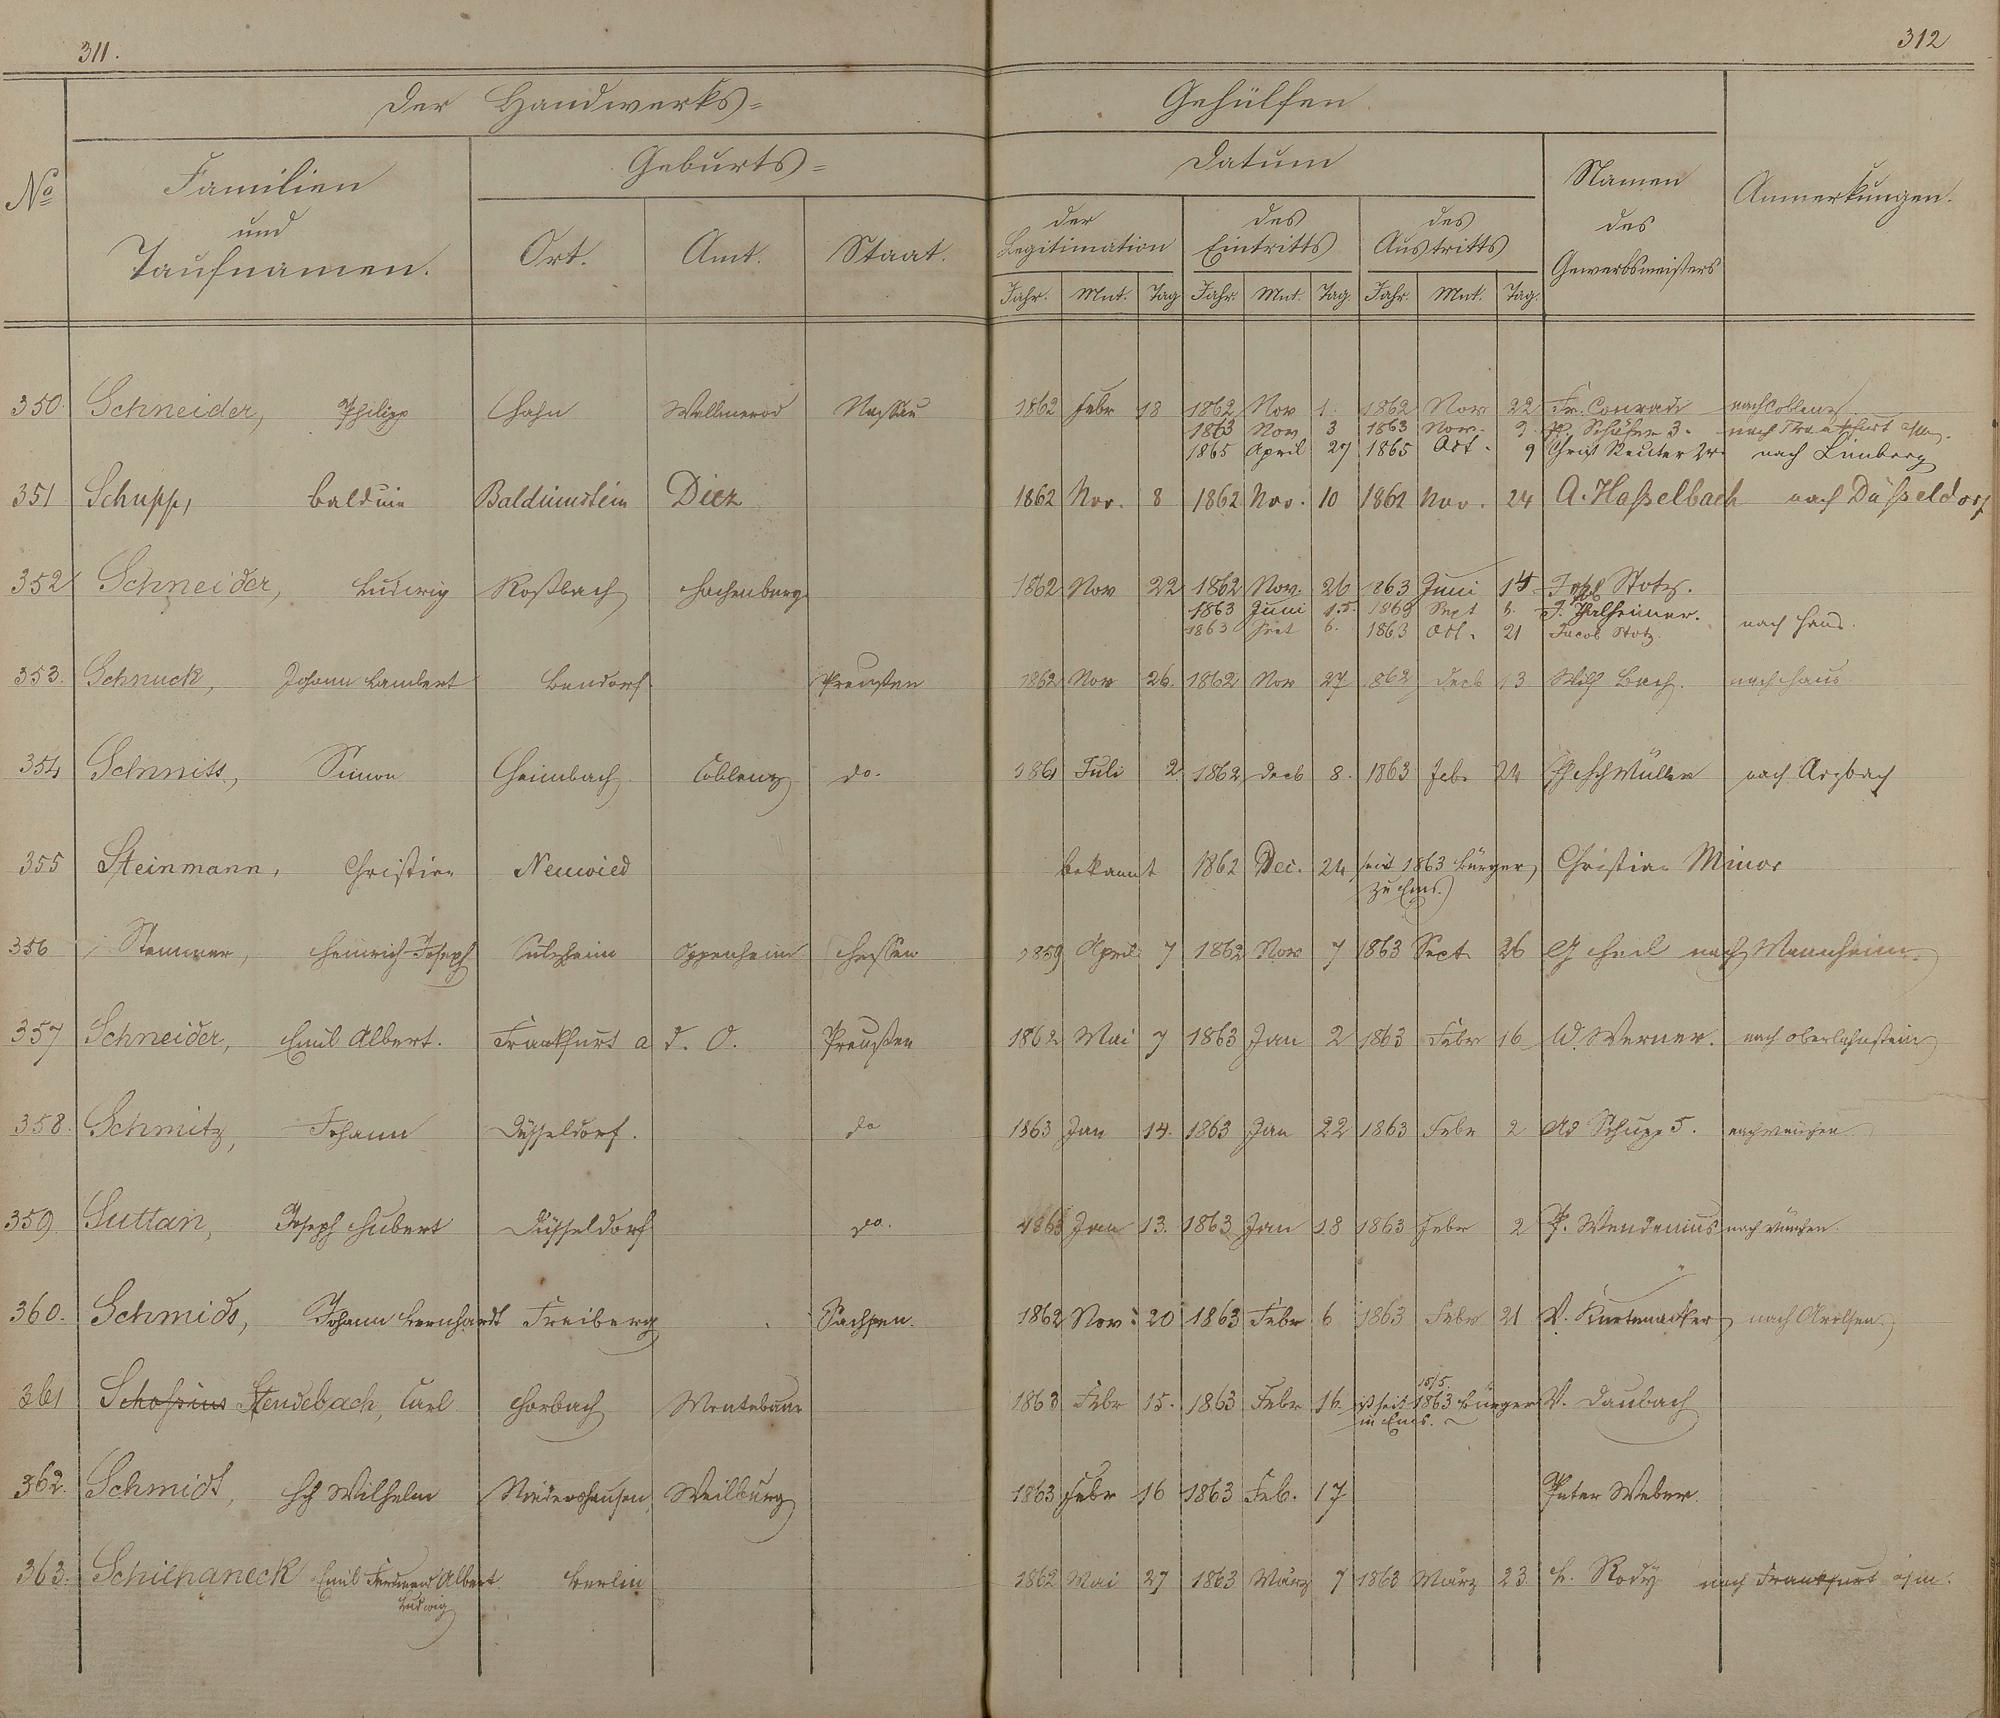 311.
312
Der Handwerks=
Gehülfen
No
Familien
und
Taufnamen.
Geburts=
Ort. Amt. Staat.
Datum
der
Legitimation
des
Eintritts
des
Austritts
Jahr. Mnt. Tag Jahr. Mnt. Tag Jahr. Mnt. Tag.
Namen
des
Gewerbsmeisters
Anmerkungen.
350. Schneider, Philipp Hahn Wallmerod Nassau 1862 Febr 18 1862 Nov 1. 1862 Nov 22 Fr. Conradi nach Coblenz.
1863 Nov 3 1863 Nov. 9. Schäfer 3. nach Frankfurt
1865 April 27 1865 Oct. 9 Christ Reuter 2r nach Limburg
351 Schupp, Balduin Balduinstein Diez 1862 Nov. 8 1862 Nov. 10 1862 Nov. 24 A. Haßelbach nach Düßeldorf
352 Schneider, Ludwig Roßbach Hachenburg 1862 Nov 22 1862 Nov. 26 1863 Juni 14 Stotz.
1863 Juni 15. 1863 Sept 6. J. Thalheimer.
1863 Sept 6. 1863 Oct. 21 Jacob Stotz. nach Haus.
353. Schnuck, Johann Lambert Bendorf. Preußen 1862 Nov 26. 1862 Nov 27 1862 Decb 13 Wilh Bach. nach Haus
354 Schmitt, Simon Heimbach Coblenz do. 1861 Juli 2 1862 Decb 8. 1863 Febr 24 Müller nach Arzbach
355 Steinmann, Christian Neuwied bekannt 1862 Dec. 24 seit 1863 Bürger Christian Minor
zu Ems.
356 Stemmer, Heinrich Joseph Sulzheim Oppenheim Hessen 1859 April 7 1862 Nov 7 1863 Sept 26 nach Mannheim.
357 Schneider, Emil Albert. Frankfurt a d. O. Preußen 1862 Mai 7 1863 Jan 2 1863 Febr 16 W. Werner. nach Oberlahnstein
358. Schmitz, Johann Düsseldorf. do 1863 Jan 14. 1863 Jan 22 1863 Febr 2 Ad Schupp 5. nach München
359. Suttan, Joseph Hubert Düsseldorf do. 1863 Jan 13. 1863 Jan 18 1863 Febr 2 P. Wendenius nach München.
360. Schmidt, Johann Bernhardt Freiberg Sachsen. 1862 Nov. 20 1863 Febr 6 1863 Febr 21 V. Knetenacker nach Arolsen.
361 Stendebach, Carl Horbach Montabaur 1863 Febr 15. 1863 Febr 16. ist seit 15/5 1863 Bürger V. Daubach
in Ems.
362. Schmidt, Hch Wilhelm Niedershausen Weilburg 1863 Febr 16 1863 Feb. 17 Peter Weber.
363. Schilhaneck Emil Ferdinand Albert Berlin 1862 Mai 27 1863 März 7 1863 März 23. Rody nach Frankfurt a/m.
Ludwig